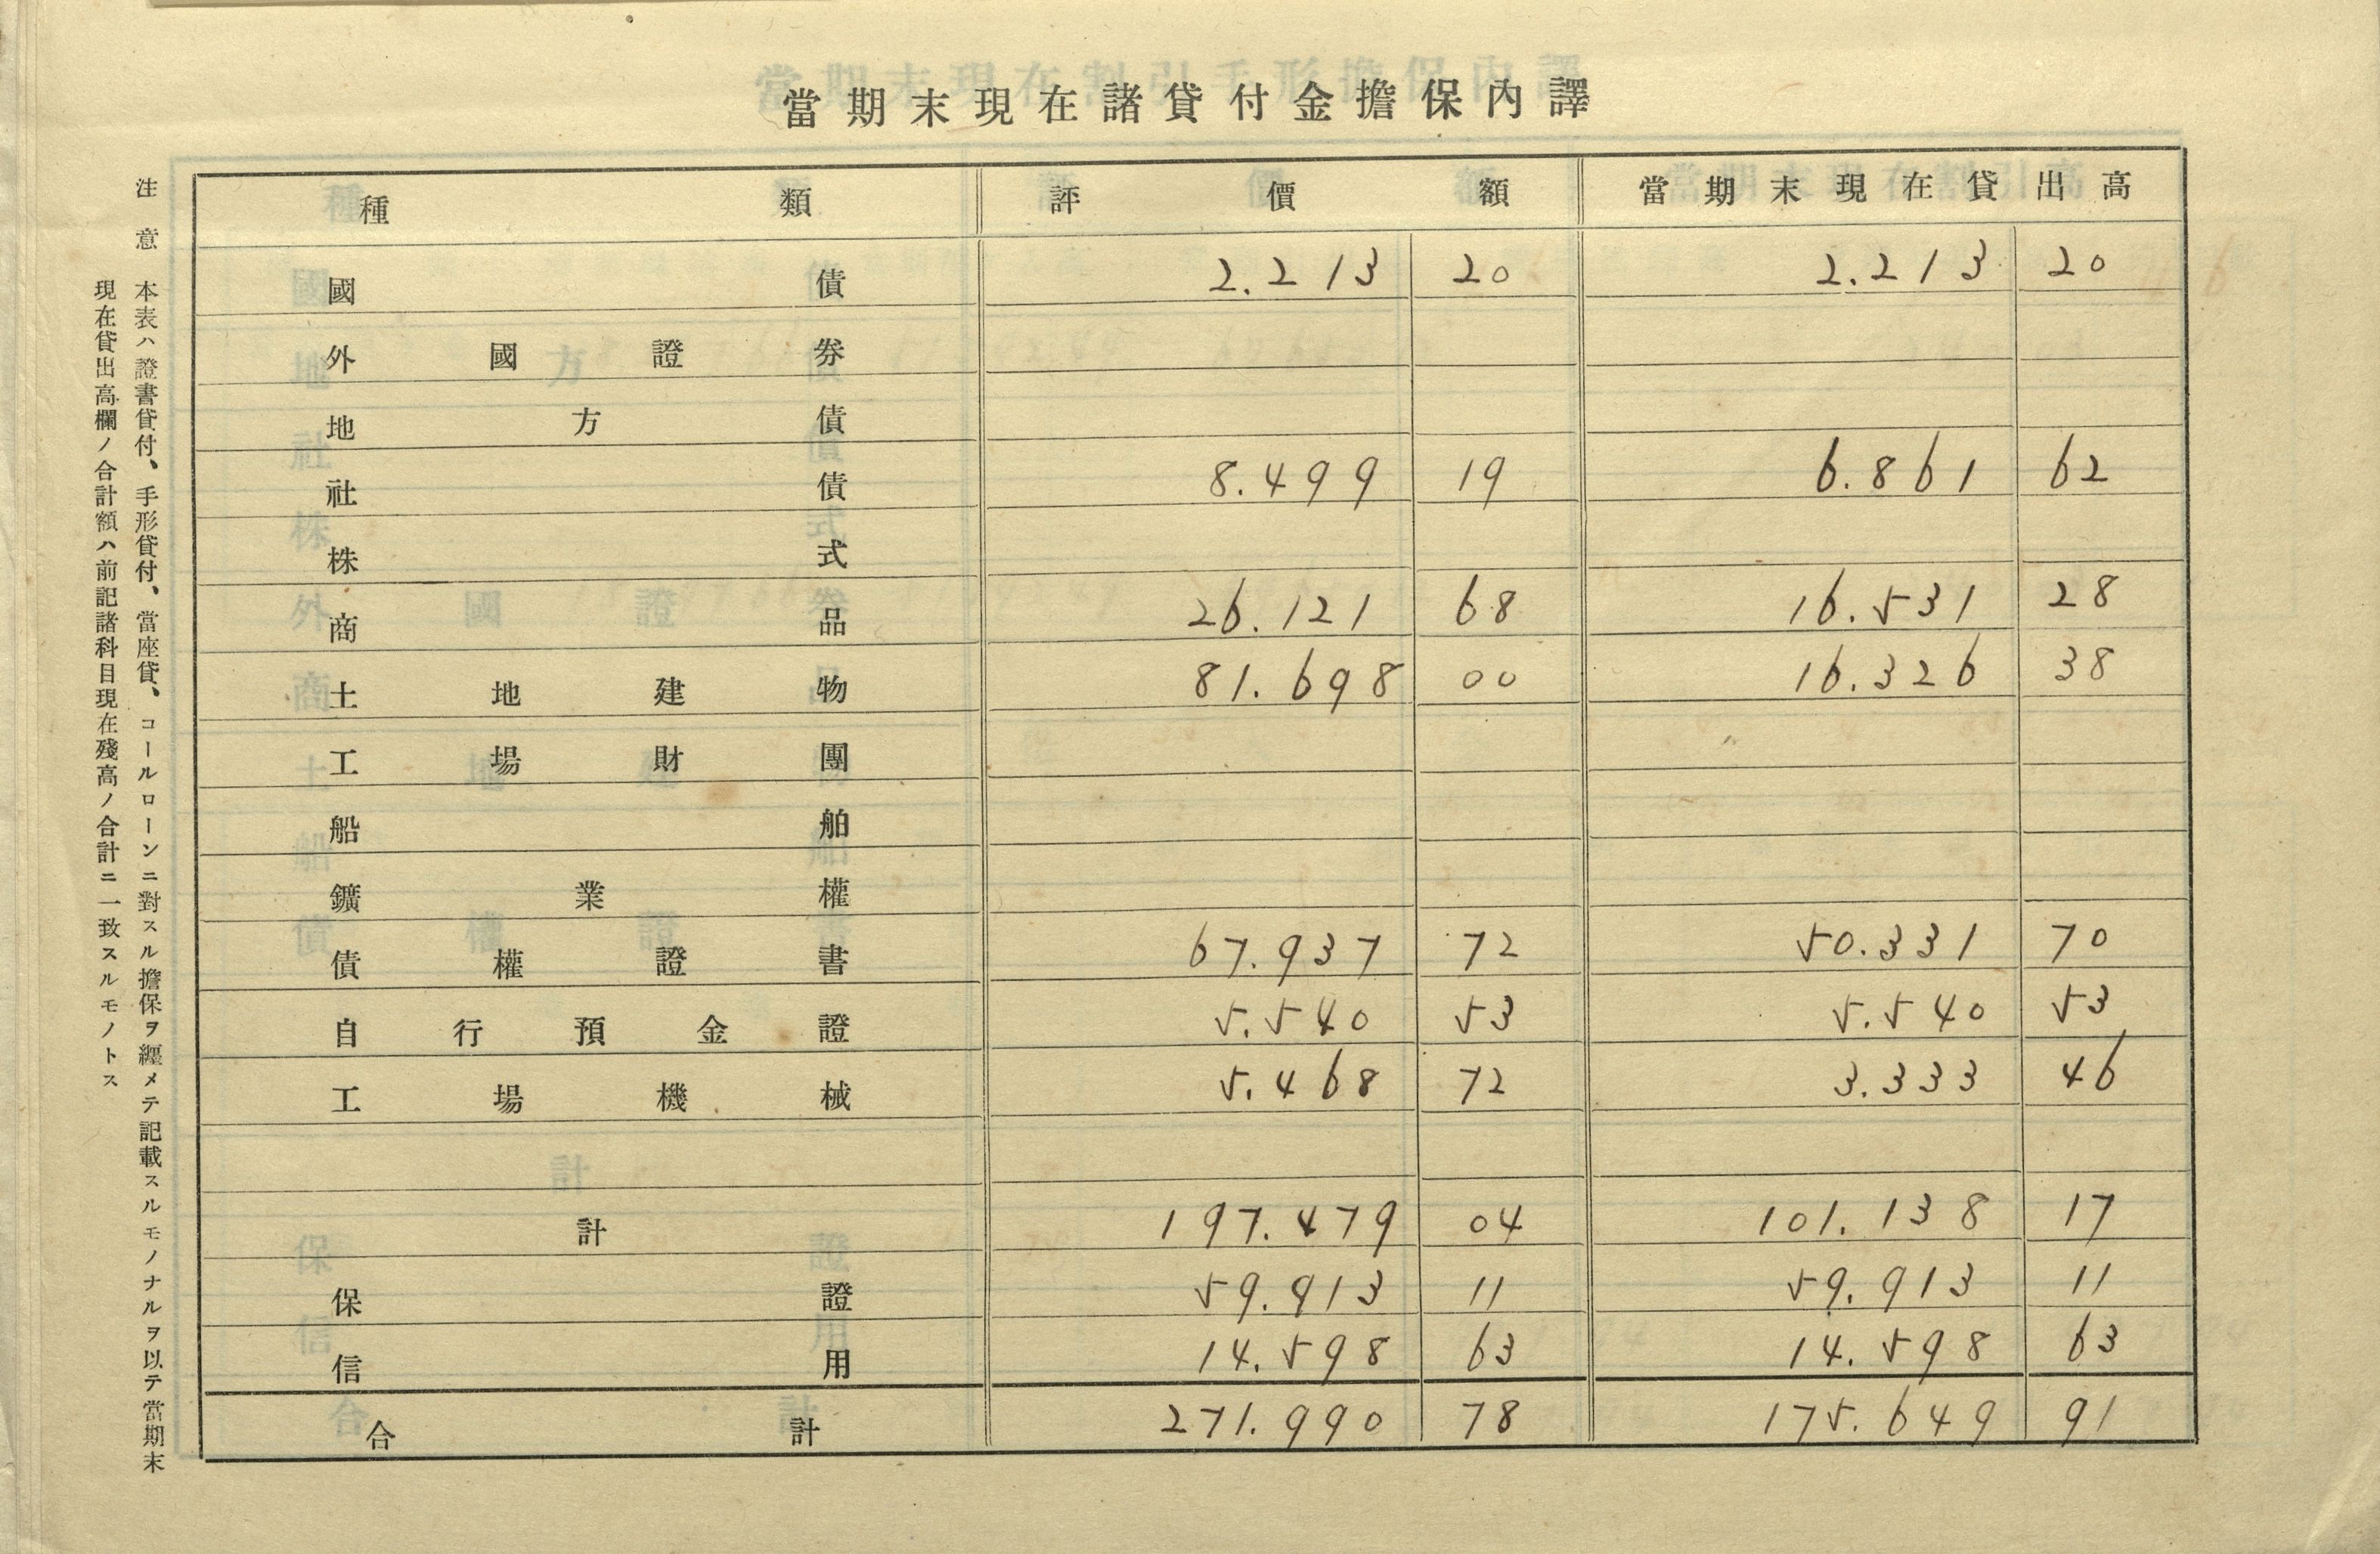 當期末現在諸貸付金擔保內譯
種類 評價額 當期末現在貸出高
國債 2.213 20 2.213 20
外國證券
地方債
社債 8.499 19 6.861 62
株式
商品 26.121 68 16.531 28
土地建物 81.698 00 16.326 38
工場財團
船舶
鑛業權
債權證書 67.937 72 50.331 70
自行預金證 5.540 53 5.540 53
工場機械 5.468 72 3.333 46
計 197.479 04 101.138 17
保證 59.913 11 59.913 11
信用 14.598 63 14.598 63
合計 271.990 78 175.649 91
注意 本表ハ證書貸付、手形貸付、當座貸、コールローンニ對スル擔保ヲ纒メテ記載スルモノナルヲ以テ當期末
現在貸出高欄ノ合計額ハ前記諸科目現在殘高ノ合計ニ一致スルモノトス